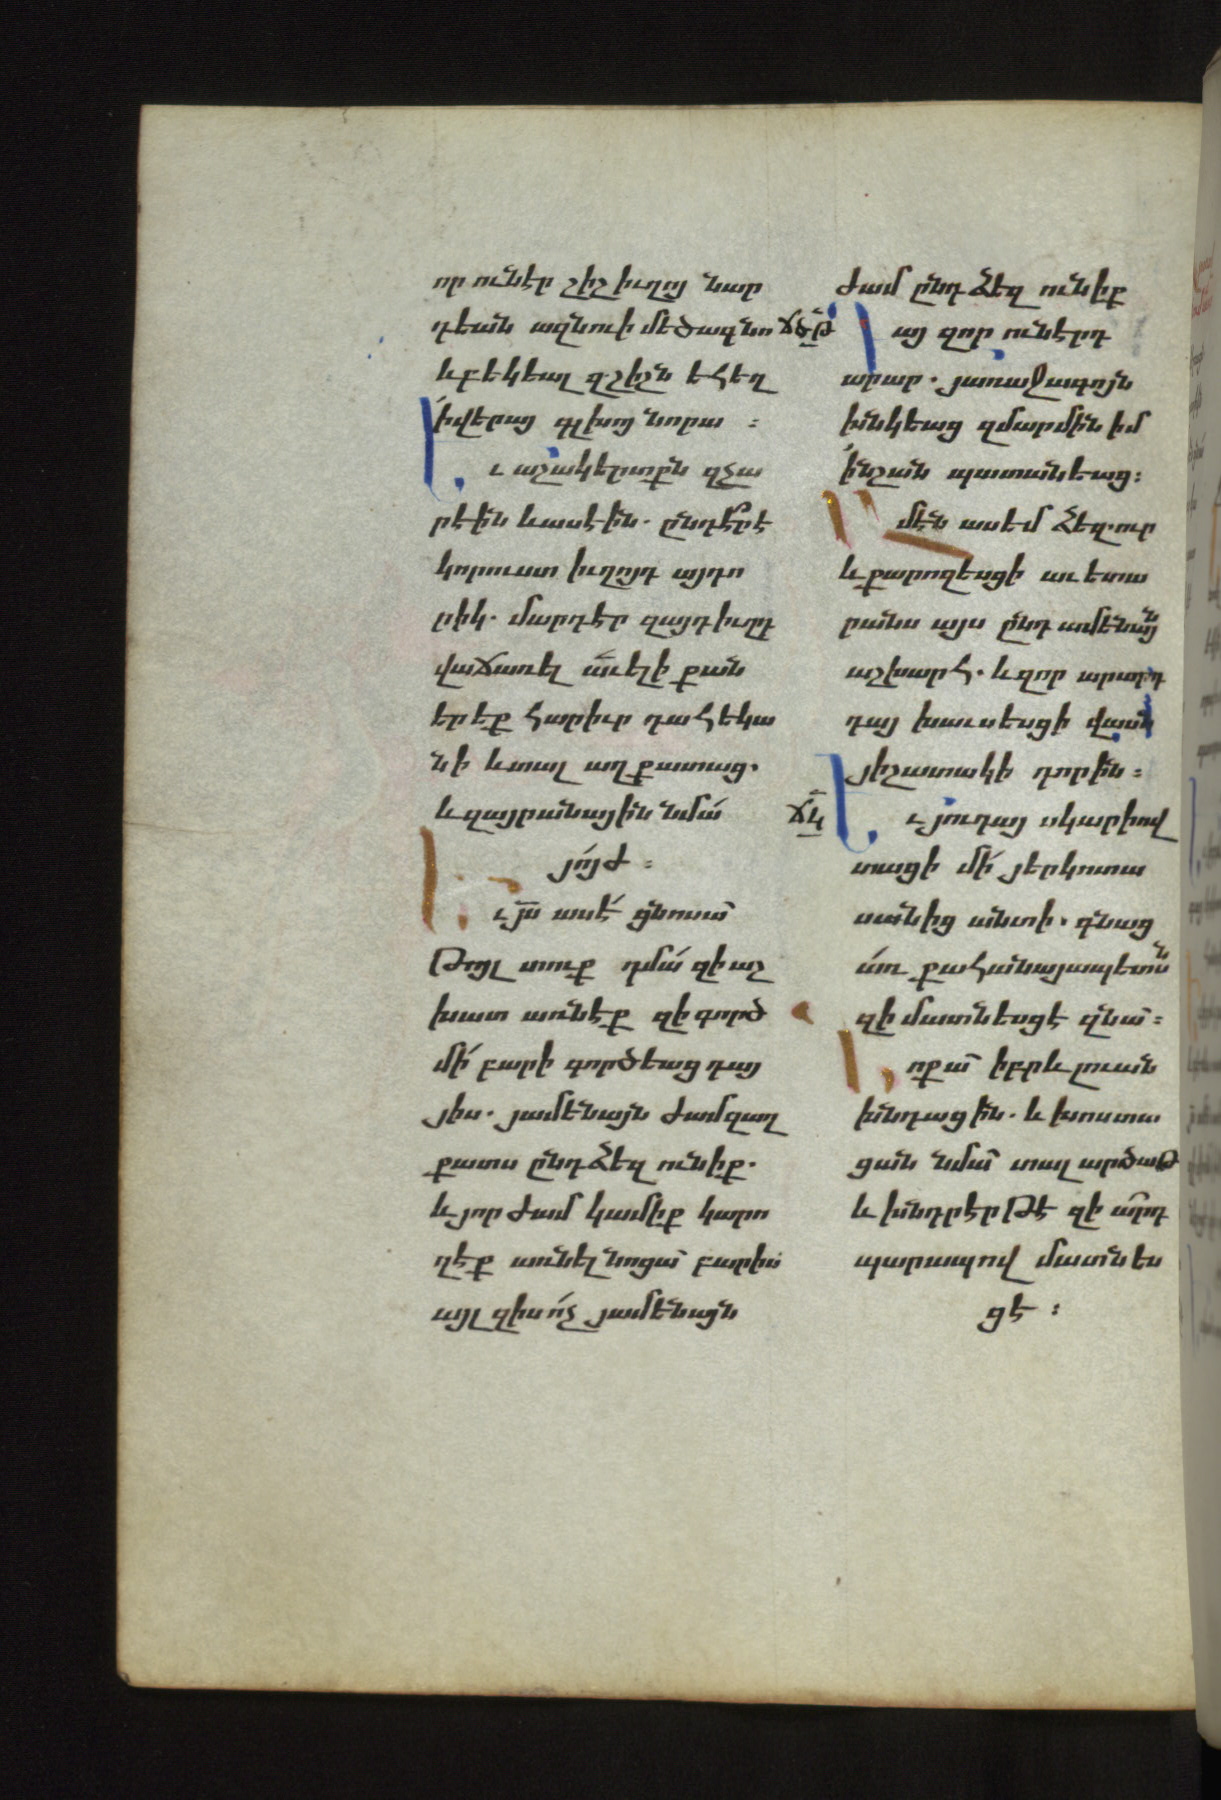 որ ունէր շիշ իւղոյ նար
դեան ազնուի մեծագնո
և բեկեալ զշիշն եհեղ
ի վերայ գլխոյ նորա ։
և աշակերտքն զչա
րէին և ասէին . ընդէր է
կորուստ իւղոյդ այդո
րիկ . մարդէր զայդ իւղդ
վաճառել աւելի քան
երեք հարիւր դահեկա
նի և տալ աղքատաց .
և զայրանային նմա
յոյժ ։
Եւ յս ասէ ցնոսա
Թոյլ տուք դմա զի աշ
խատ առնէք զի գործ
մի բարի գործեաց դա յ
յիս . յամենայն ժամ զաղ
քատս ընդ ձեզ ունիք .
և յորժամ կամիք կարո
ղէք առնել նոցա բարիս
այլ զիս ոչ յամենայն
ժամ ընդ ձեզ ունիք
ՃԾԹ այ զոր ունէրդ
արար . յառաջագոյն
խնկեաց զմարմին իմ
ի նշան պատանեաց ։
Ամէն ասեմ ձեզ . ուր
և քարոզեսցի աւետա
րանս այս ընդ ամենայն
աշխարհ . և զոր արարդ
դա յ խաւսեսցի վասն
յիշատակի դորին ։
ՃԿ Եւ յուդայ սկարիով
տացի մի յերկոտա
սանից անտի . գնաց
առ քահանայապետսն
զի մատնեսցէ զնա ։
Նոքա իբրև լուան
խնդացին . և խոստա
ցան նմա տալ արծաթ
և խնդրէր թէ զիարդ
պարապով մատնես
ցէ ։